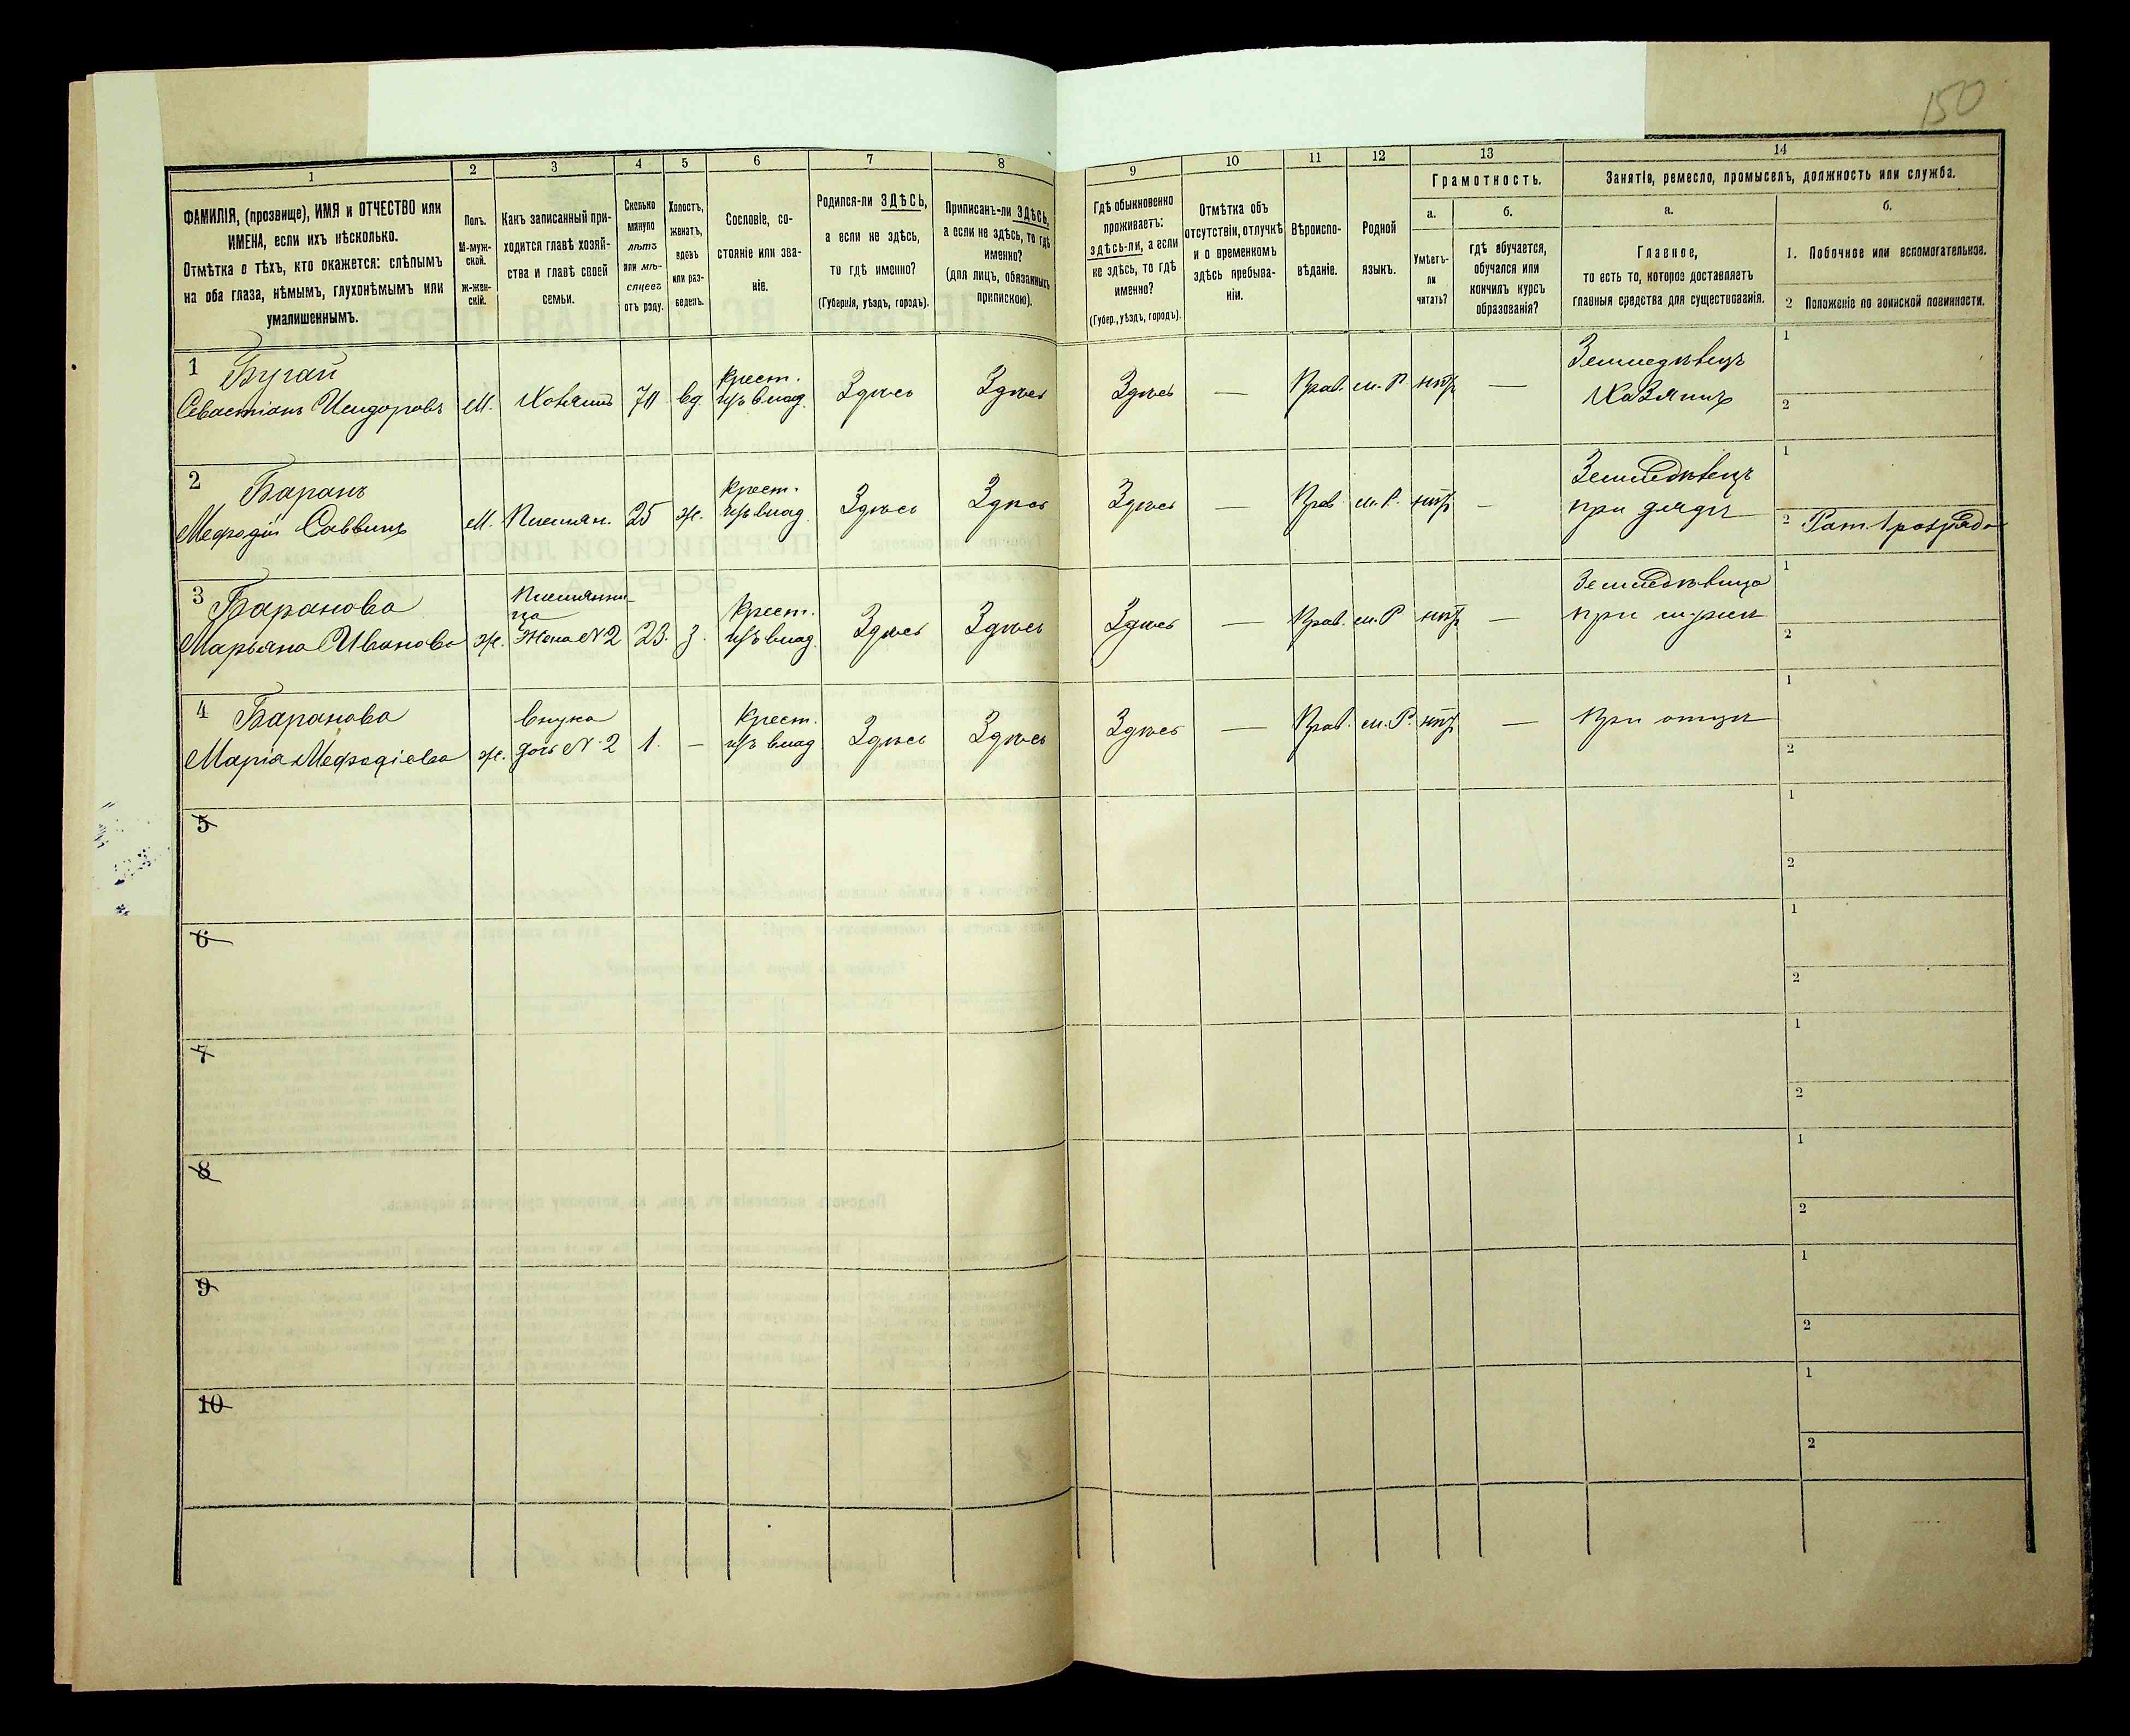 150
1
2
3
4
5
6
7
8
9
10
11
12
13
14
ФАМИЛІЯ, (прозвище), ИМЯ и ОТЧЕСТВО или
ИМЕНА, если ихъ нѣсколько.
Отмѣтка о тѣхъ, кто окажется: слѣпымъ
на оба глаза, нѣмымъ, глухонѣмымъ или
умалишеннымъ.
Полъ.
М-муж-
ской.
Ж-жен-
скій.
Какъ записанный при-
ходится главѣ хозяй-
ства и главѣ своей
семьи.
Сколько
минуло
лѣтъ
или мѣ-
сяцевъ
отъ роду.
Холостъ,
женатъ,
вдовъ
или раз-
веденъ.
Сословіе, со-
стояніе или зва-
ніе.
Родился-ли ЗДѢСЬ,
а если не здѣсь,
то гдѣ именно?
(Губернія, уѣздъ, городъ).
Приписанъ-ли ЗДѢСЬ,
а если не здѣсь, то гдѣ
именно?
(для лицъ, обязанныхъ
припискою).
Гдѣ обыкновенно
проживаетъ:
здѣсь-ли, а если
не здѣсь, то гдѣ
именно?
(Губер., уѣздъ, городъ).
Отмѣтка объ
отсутствіи, отлучкѣ
и о временномъ
здѣсь пребыва-
ніи.
Вѣроиспо-
вѣданіе.
Родной
языкъ.
Грамотность.
а.
Умѣетъ-
ли
читать?
б.
гдѣ обучается,
обучался или
кончилъ курсъ
образованія?
Занятіе, ремесло, промыселъ, должность или служба.
а.
Главное,
то есть то, которое доставляетъ
главныя средства для существованія.
б.
1. Побочное или вспомогательное.
2 Положеніе по воинской повинности.
1 Бугай
Севастіанъ Исидоровъ
М.
Хозяинъ
70
вд.
Крест.
изъ влад.
Здѣсь
Здѣсь
Здѣсь
—
Прав.
м. Р.
нѣтъ
—
Земледѣлецъ
Хазяинъ
1
2
2 Баранъ
Мефодій Саввинъ
М.
Племян.
25
ж.
Крест.
изъ влад.
Здѣсь
Здѣсь
Здѣсь
—
Прав.
м. Р.
нѣтъ
—
Земледѣлецъ
при дядѣ
1
2 Рат. 1 розряда
3 Баранова
Марьяна Иванова
ж.
Племянни-
ца
Жена N 2
23.
з.
Крест.
изъ влад.
Здѣсь
Здѣсь
Здѣсь
—
Прав.
м. Р
нѣтъ
—
Земледѣлица
при мужѣ
1
2
4 Баранова
Марія Мефодіева
ж.
внука
дочь N 2
1.
—
Крест.
изъ влад
Здѣсь
Здѣсь
Здѣсь
—
Прав.
м. Р.
нѣтъ
—
при отцѣ
1
2
5
1
2
6
1
2
7
1
2
8
1
2
9
1
2
10
1
2